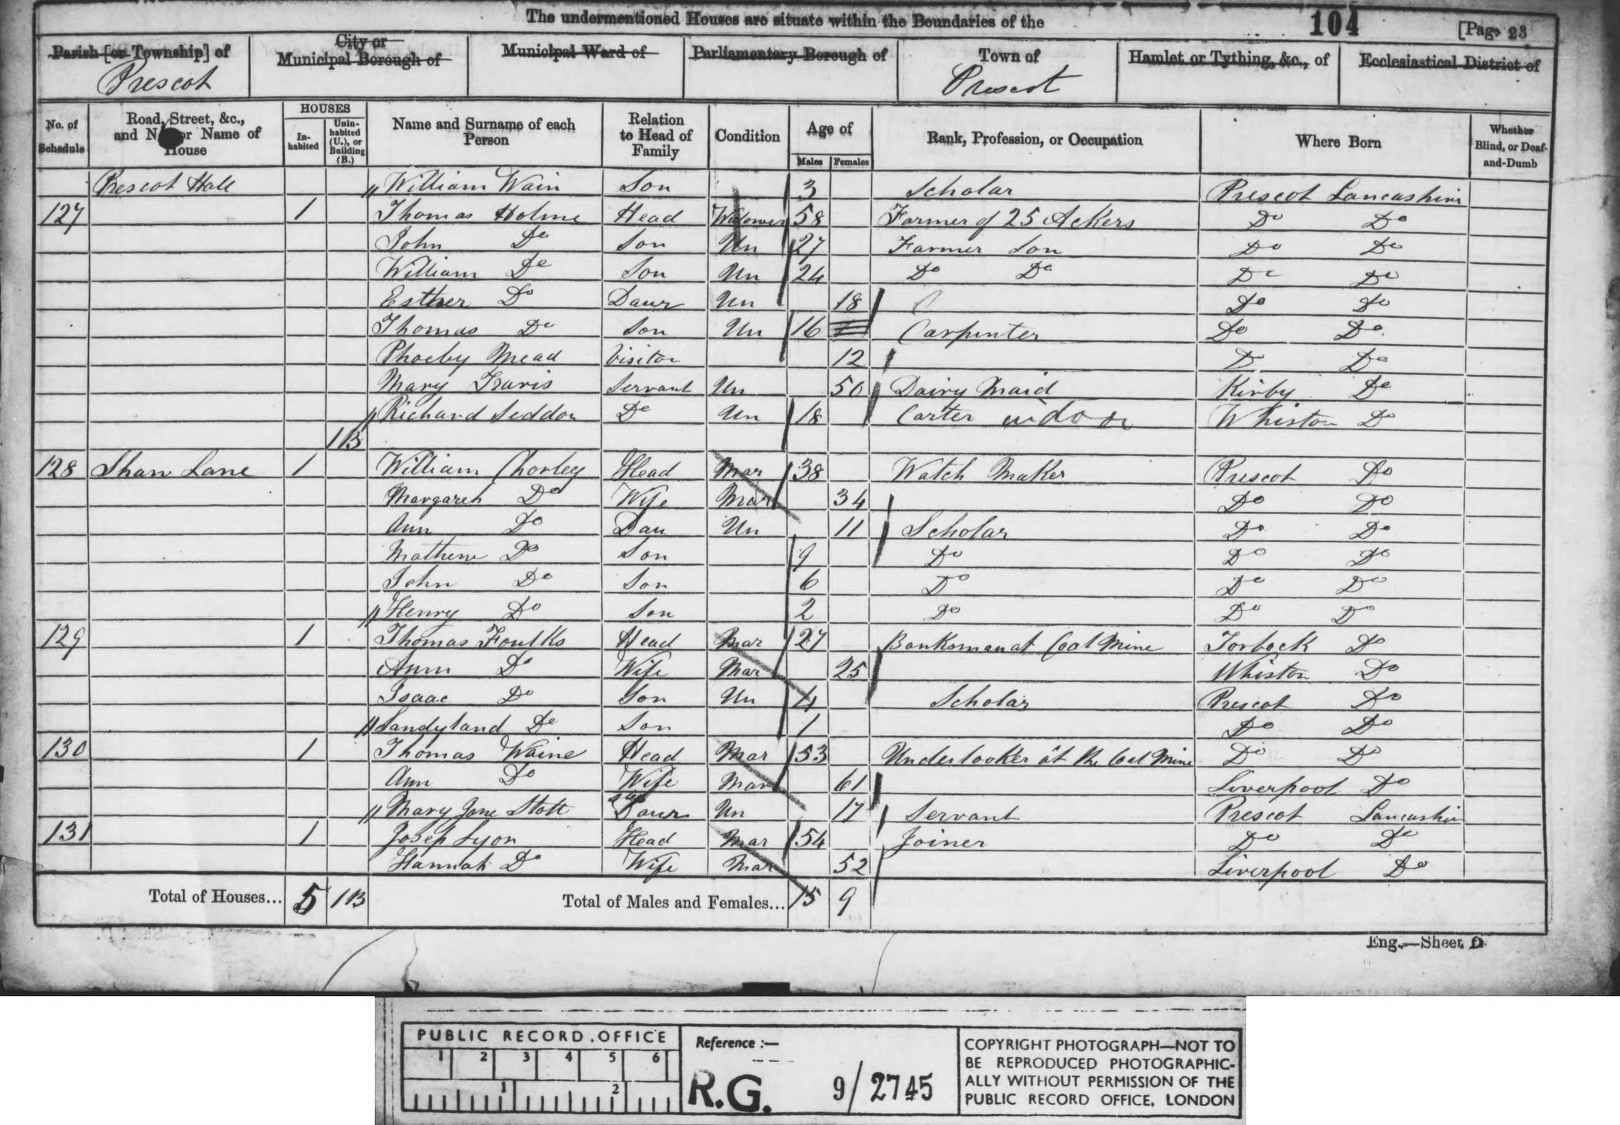 The undermentioned Houses are situate within the Boundaries of the 104 [Page 23
Parish [or Township] of City or Municipal Borough of Municipal Ward of Parliamentary Borough of Town of Hamlet or Tything, &c., of Ecclesiastical District of
Prescot Prescot
No. of Schedule Road, Street, &c., and No. or Name of House HOUSES Inhabited Uninhabited (U.), or Building (B.) Name and Surname of each Person Relation to Head of Family Condition Age of Males Females Rank, Profession, or Occupation Where Born Whether Blind, or Deaf-and-Dumb
Prescot Hall William Wain Son 3 Scholar Prescot Lancashire
127 1 Thomas Holme Head Widower 58 Farmer of 25 Ackers Do Do
John Do Son Un 27 Farmer Son Do Do
William Do Son Un 24 Do Do Do Do
Esther Do Daur Un 18 Do Do
Thomas Do Son Un 16 Carpenter Do Do
Phoeby Mead Visitor 12 Do Do
Mary Travis Servant Un 50 Dairy Maid Kirby Do
Richard Seddon Do Un 18 Carter indoor Whiston Do
1B
128 Shaw Lane 1 William Chorley Head Mar 38 Watch Maker Prescot Do
Margaret Do Wife Mar 34 Do Do
Ann Do Dau Un 11 Scholar Do Do
Mathew Do Son 9 Do Do Do
John Do Son 6 Do Do Do
Henry Do Son 2 Do Do Do
129 1 Thomas Foulks Head Mar 27 Banksman at Coal Mine Torbock Do
Ann Do Wife Mar 25 Whiston Do
Isaac Do Son Un 4 Scholar Prescot Do
Sandyland Do Son 1 Do Do
130 1 Thomas Waine Head Mar 53 Underlooker at the Coal Mine Do Do
Ann Do Wife Mar 61 Liverpool Do
Mary Jane Stott Daur Un 17 Servant Prescot Lancashire
131 1 Josep Lyon Head Mar 54 Joiner Do Do
Hannah Do Wife Mar 52 Liverpool Do
Total of Houses... 5 1B Total of Males and Females... 15 9
Eng.—Sheet D
PUBLIC RECORD OFFICE
1 2 3 4 5 6
1 2
Reference :—
R.G. 9/2745
COPYRIGHT PHOTOGRAPH—NOT TO
BE REPRODUCED PHOTOGRAPHIC-
ALLY WITHOUT PERMISSION OF THE
PUBLIC RECORD OFFICE, LONDON